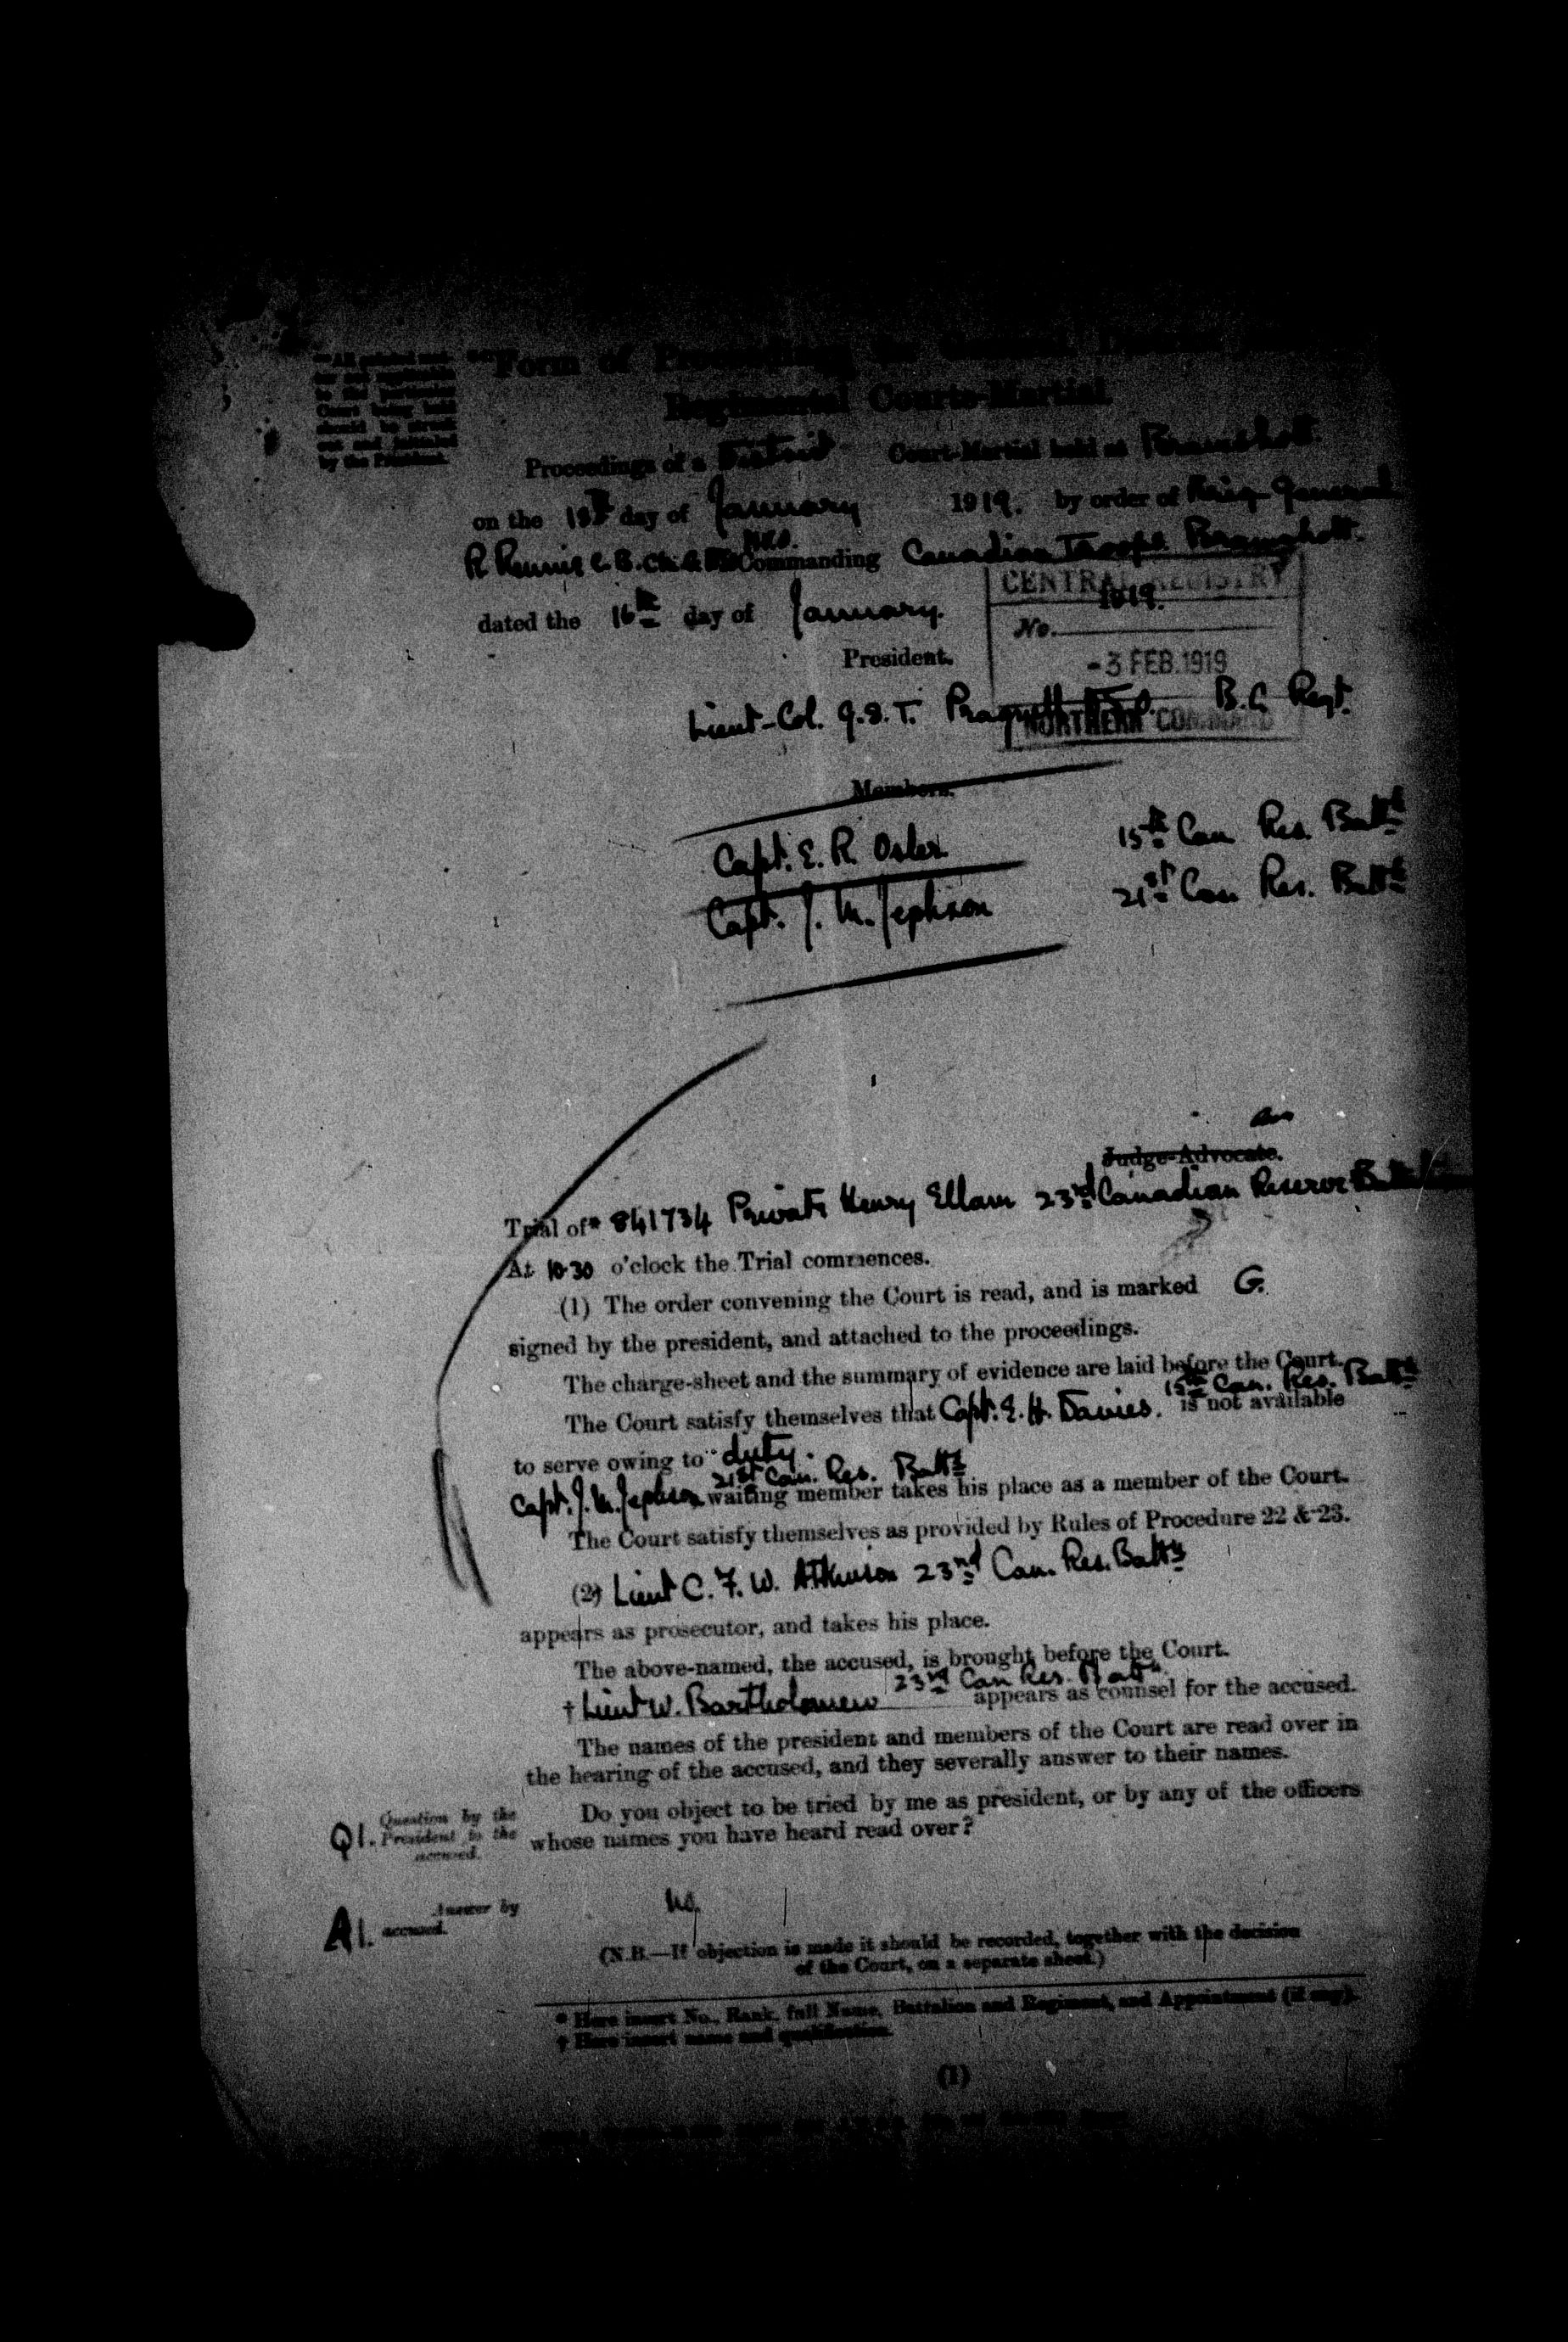 Form of Proceedings for General, District
Regimental Courts-Martial.
by the President.
Proceedings of a District Court-Martial held at Bramshott
on the 18th day of January 1919. by order of Brig-General
R Rennie C.B. C.M.G. D.S.O. M.V.O. Commanding Canadian Troops Bramshott.
dated the 16th day of January. 1919.
CENTRAL REGISTRY
No.
-3 FEB. 1919
NORTHERN COMMAND
President.
Lieut-Col. B.C. Regt.
Members.
Capt. E. R. Osler 15th Can Res. Battn
Capt. J. M. Jephson 21st Can Res. Battn
Judge-Advocate.
Trial of* 841734 Private Henry Ellam 23rd Canadian Reserve Battalion
At 10.30 o'clock the Trial commences.
(1) The order convening the Court is read, and is marked G.
signed by the president, and attached to the proceedings.
The charge-sheet and the summary of evidence are laid before the Court.
The Court satisfy themselves that Capt. E. H. Davies. 15th Can. Res. Battn is not available
to serve owing to duty.
Capt. J. M. Jephson 21st Can. Res. Battn waiting member takes his place as a member of the Court.
The Court satisfy themselves as provided by Rules of Procedure 22 & 23.
(2) Lieut C. F. W. Atkinson 23rd Can. Res. Battn
appears as prosecutor, and takes his place.
The above-named, the accused, is brought before the Court.
† Lieut W. Bartholomew 23rd Can Res. Batn appears as counsel for the accused.
The names of the president and members of the Court are read over in
the hearing of the accused, and they severally answer to their names.
Q1. Question by the President to the accused.
Do you object to be tried by me as president, or by any of the officers
whose names you have heard read over?
A1. Answer by accused.
No.
(N.B.—If objection is made it should be recorded, together with the decision
of the Court, on a separate sheet.)
* Here insert No., Rank, full Name, Battalion and Regiment, and Appointment (if any).
† Here insert name and qualification.
(1)